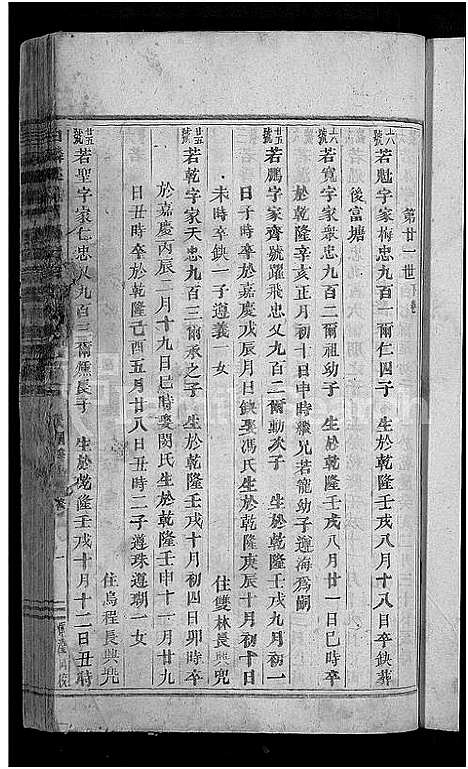 第廿一世
十六號 若魁字家梅忠九百一爾仁四子　生於乾隆壬戌八月十八日卒缺葬
後富塘
十六號 若寬字家衆忠九百二爾祖幼子　生於乾隆壬戌八月廿一日巳時卒
於乾隆辛亥正月初十日申時繼兄若寵幼子遵海為嗣
廿五號 若鵬字家齊號躍飛忠乂九百二爾勳次子　生於乾隆壬戌九月初一
日子時卒於嘉慶戊辰月日缺娶馮氏生於乾隆庚辰十月初十日
未時卒缺一子遵義一女　住雙林長興兜
廿五號 若乾字家天忠九百三爾承之子　生於乾隆壬戌十月初四日卯時卒
於嘉慶丙辰二月十九日巳時娶閔氏生於乾隆壬申十一月廿九
日丑時卒於乾隆己酉五月廿八日丑時二子遵珠遵瑚一女
住烏程長興兜
廿五號 若聖字家仁忠乂九百三爾燕長子　生於乾隆壬戌十月十二日丑時